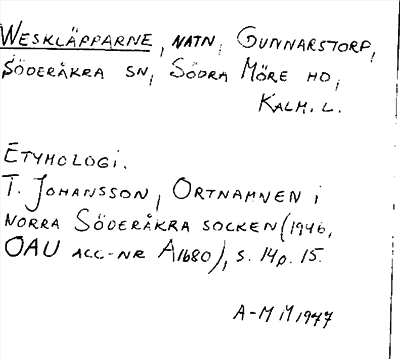 WESKLÄPPARNE, NATN, GUNNARSTORP,
SÖDERÅKRA SN, SÖDRA MÖRE HD,
KALM. L.
ETYMOLOGI.
T. JOHANSSON, ORTNAMNEN I
NORRA SÖDERÅKRA SOCKEN (1946,
OAU ACC-NR A1680), S. 14 o. 15.
A-M M 1947